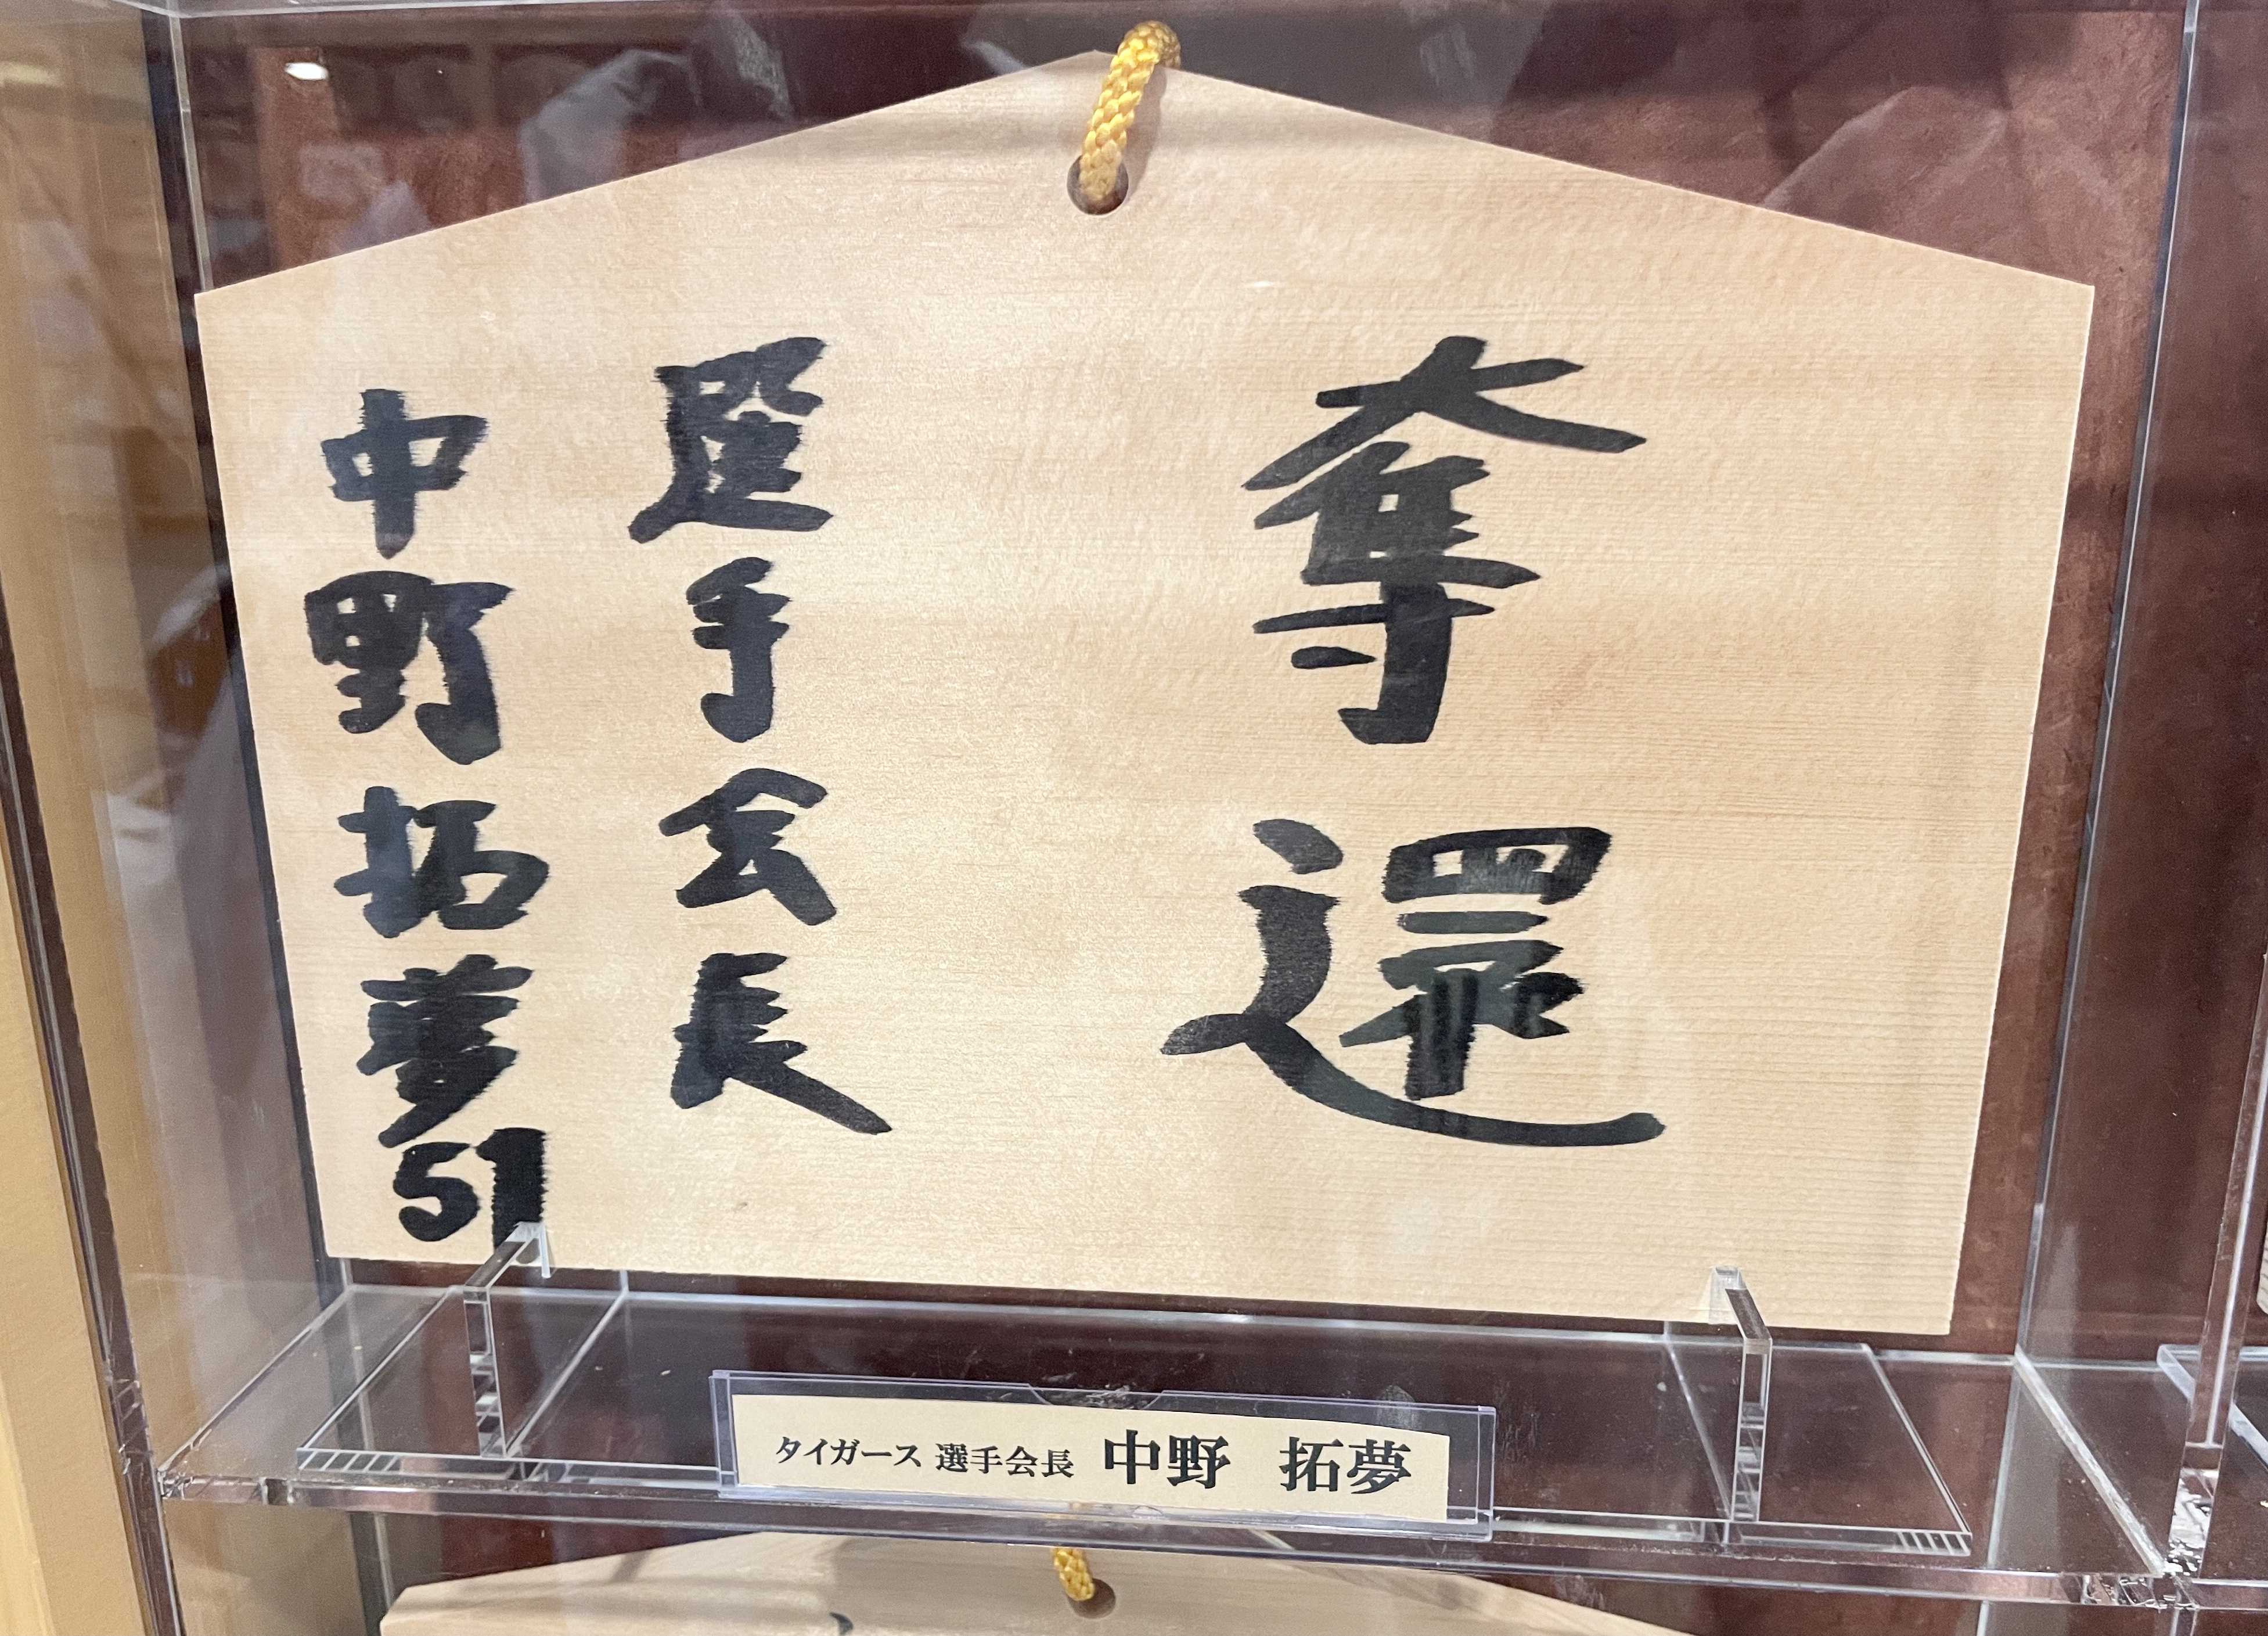 奪還
選手会長
中野拓夢51
タイガース 選手会長 中野 拓夢